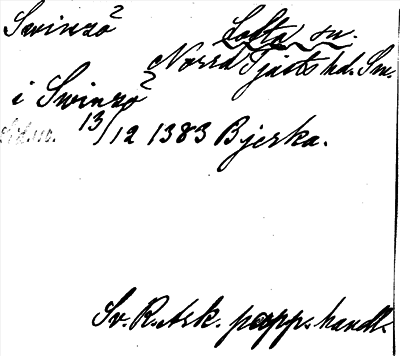 Swinzö Lofta sn.
Norra Tjusts hd. Sm.
i Swinzö
13/12 1383 Bjerka.
Sv. R. Ark. papp. handl.